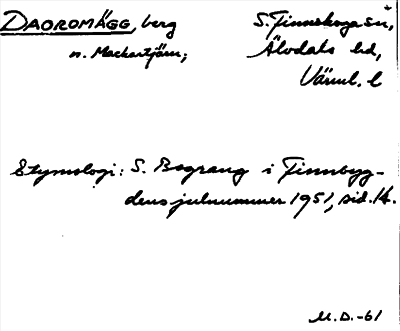 DAOROMÄGG, berg S. Finnskoga sn,
n. Mackartjärn; Älvdals hd,
Värml. l
Etymologi: S. Bograng i Finnbyg-
dens julnummer 1951, sid. 14.
M.D.-61